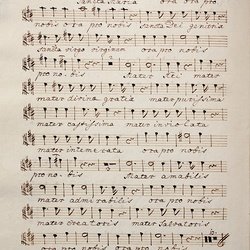 Sancta Maria ora pro
nobis ora pro nobis Sancta Dei genitrix
Sancta virgo virginum ora pro nobis
pro nobis Mater Xti mater
mater divinæ gratiæ mater purissima
mater castissima mater inviolata
mater intemerata ora pro nobis
pro nobis Mater amabilis
mater admirabilis ora pro nobis
mater creatoris mater Salvatoris
ora pro nobis ora pro nobis